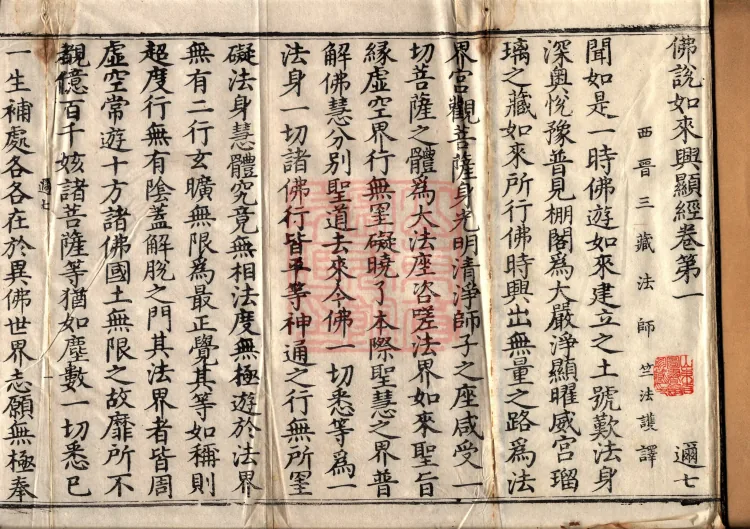 佛說如來興顯經卷第一
邇七
西晉三藏法師竺法護譯
聞如是一時佛遊如來建立之土號歎法身
深奧悅豫普見棚閣為大嚴淨顯曜威宮瑠
璃之藏如來所行佛時興出無量之路為法
界宮觀菩薩身光明清淨師子之座咸受一
切菩薩之體為大法座咨嗟法界如來聖旨
緣虛空界行無罣礙曉了本際聖慧之界普
解佛慧分別聖道去來今佛一切悉等為一
法身一切諸佛行皆平等神通之行無所罣
礙法身慧體究竟無相法度無極遊於法界
無有二行玄曠無限為最正覺其等如稱則
超度行無有陰蓋解脫之門其法界者皆周
虛空常遊十方諸佛國土無限之故靡所不
覩億百千姟諸菩薩等猶如塵數一切悉已
邇七
一生補處各各在於異佛世界志願無極奉